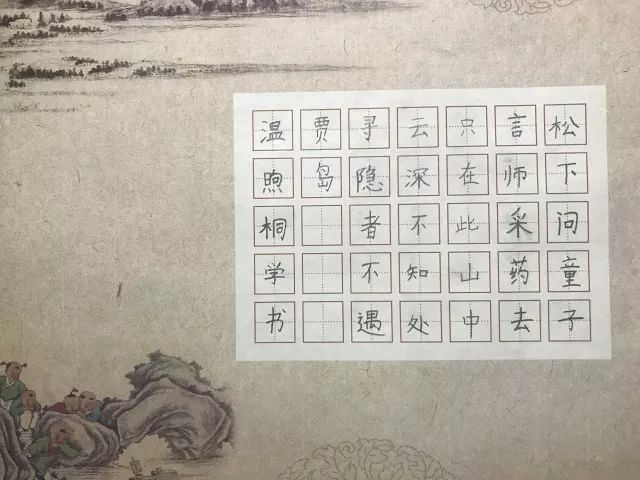 松下问童子
言师采药去
只在此山中
云深不知处
寻隐者不遇
贾岛
温煦桐学书